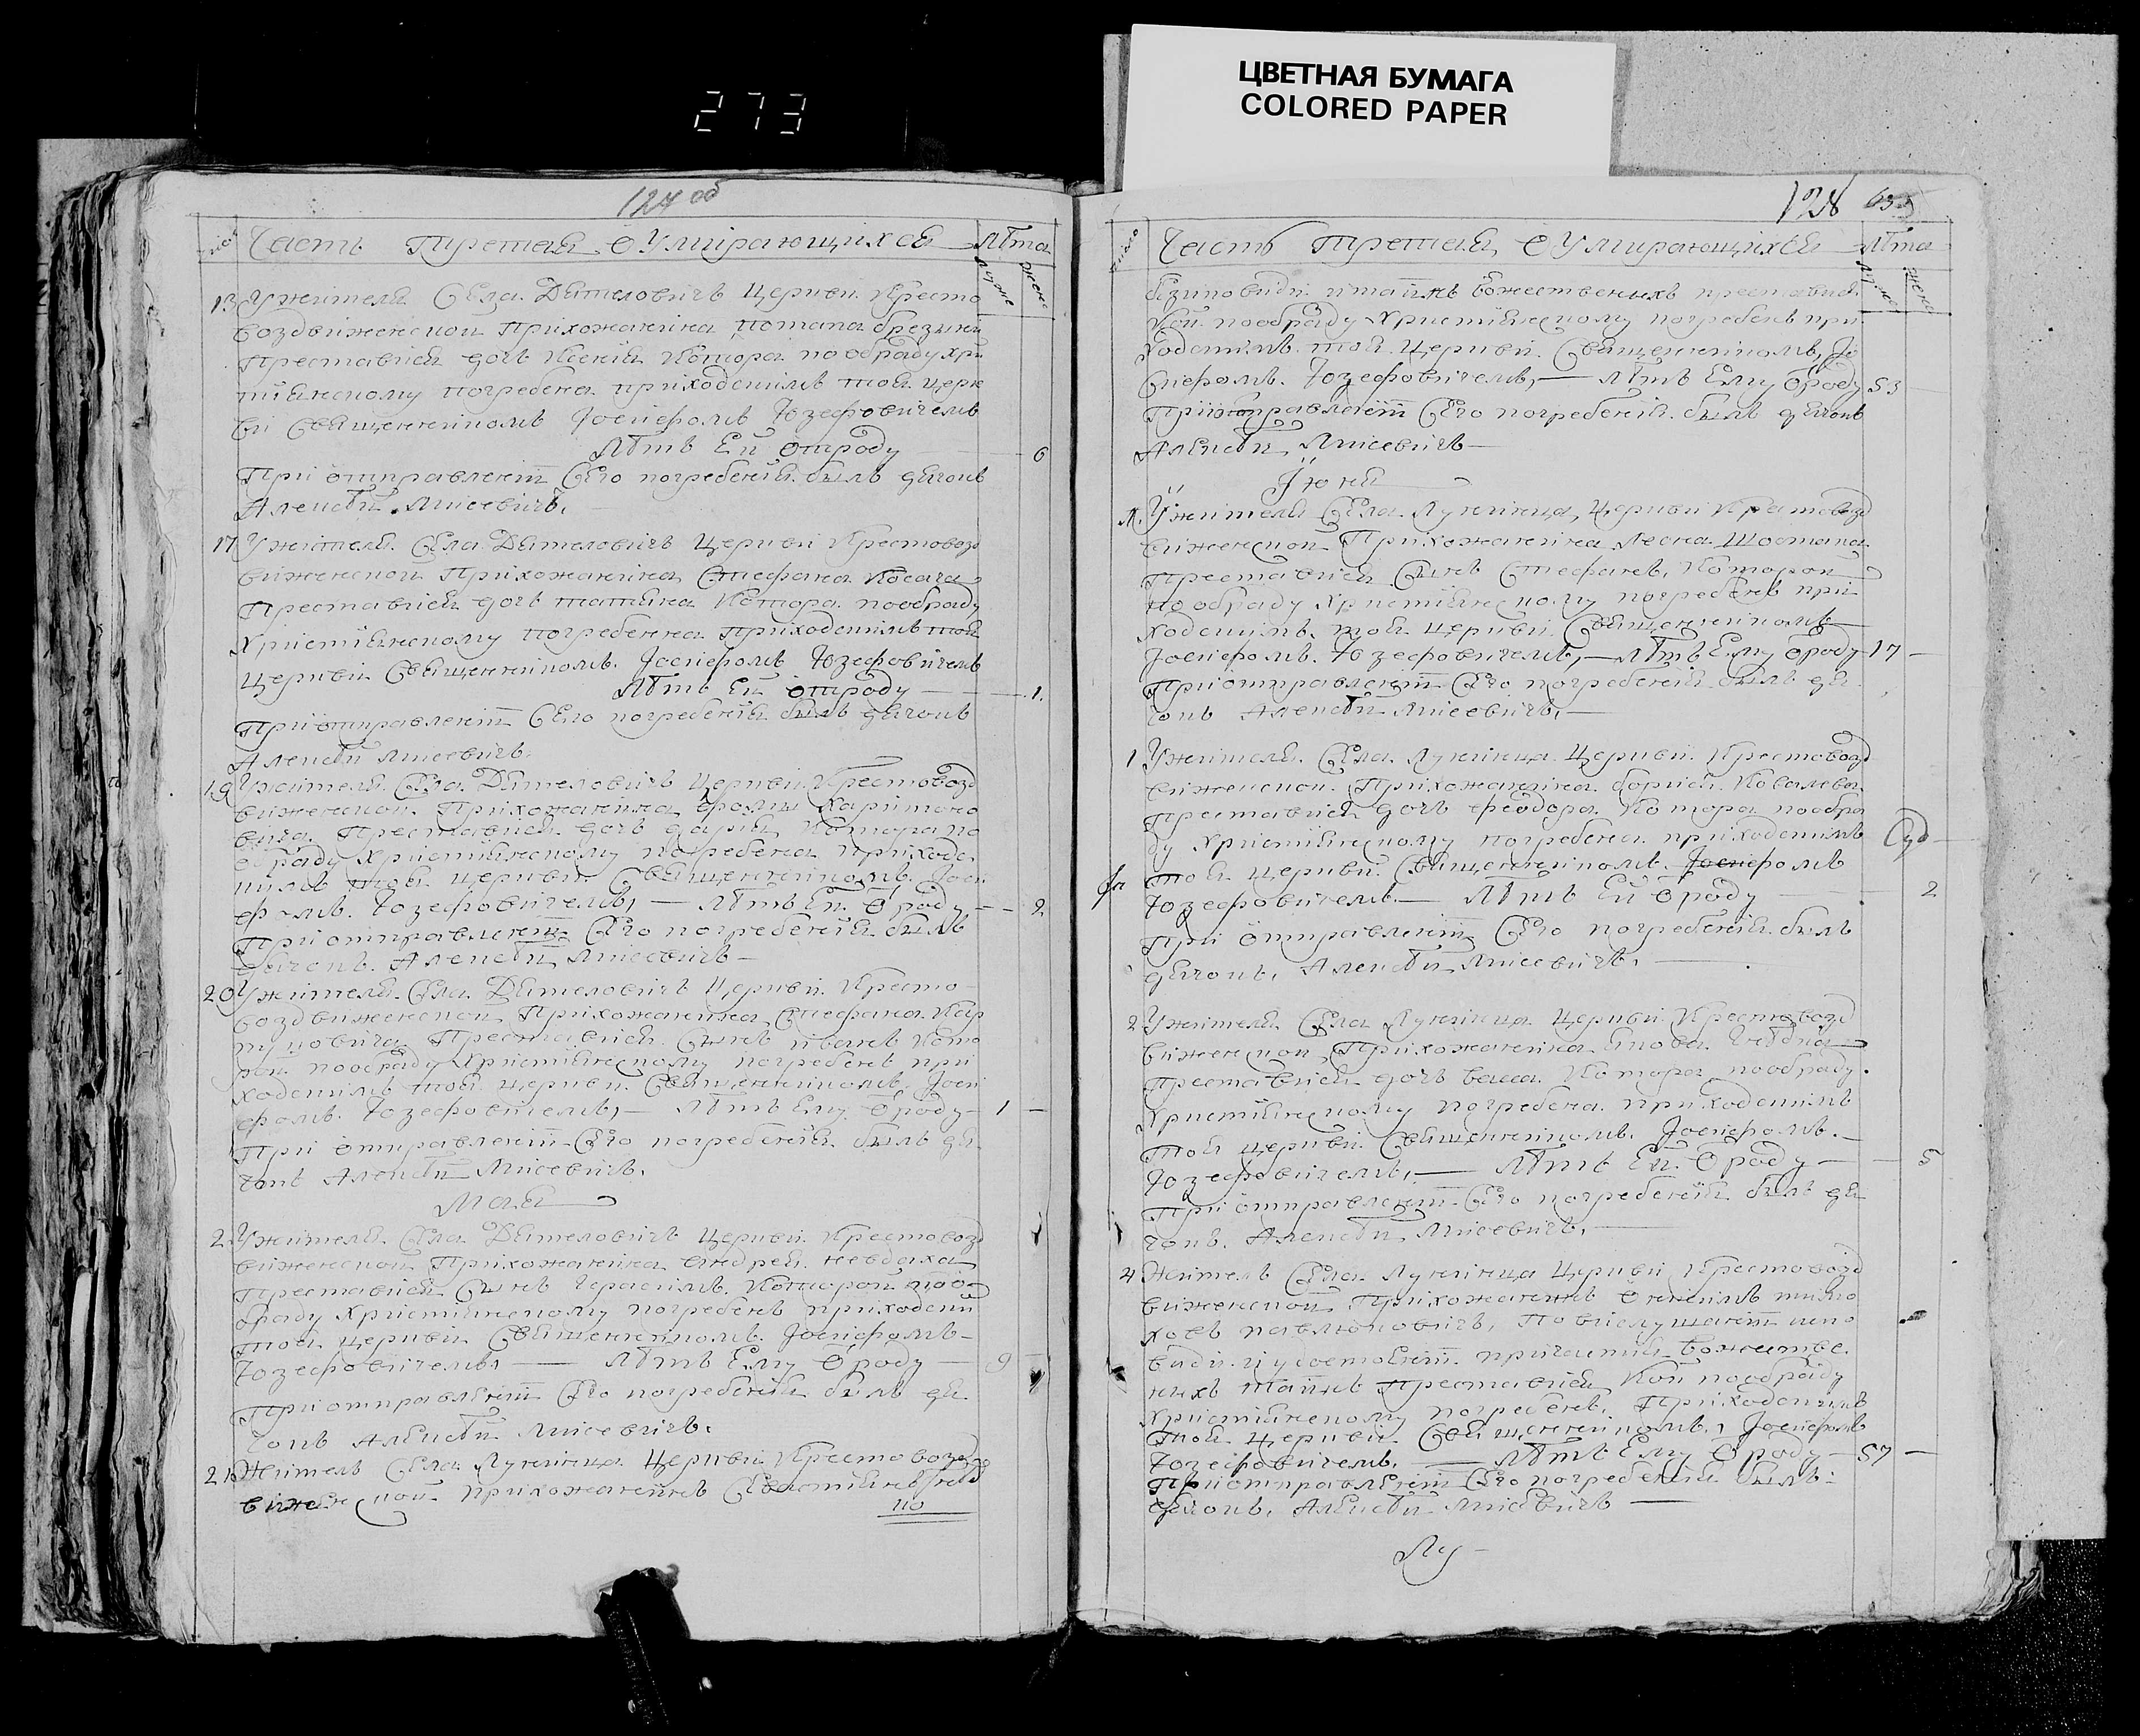 273
ЦВЕТНАЯ БУМАГА
COLORED PAPER
124 об
Часть Третая ѻ Умирающихся Лѣта
муже жене
13 Ужителя Села Дятеловичъ Церкви Кресто
воздвиженской Прихожанина потапа
Преставися дочъ Ксения Котора по обряду хри
тиянскому погребена приходскимъ тоя церк
ви Священникомъ Јосифомъ Юзефовичемъ
Лѣтъ Ей ѿроду 6
При отправленіи Сего погребения былъ дячокъ
Алексѣй Мисевичъ.
17 Ужителя Села Дятеловичъ Церкви Крестовозд
виженской Прихожанина Стефана Косача
Преставися дочъ татяна Котора пообряду
Християнскому погребенна Приходскимъ тоя
Церкви Священникомъ Јосифомъ Юзефовичемъ
Лѣтъ Ей ѿтроду 1.
Приотправленіи Сего погребения былъ дячокъ
Алексѣй Мисевичъ.
19 Ужителя Села Дятеловичъ Церкви Крестовозд
виженской Прихожанина фомы Харитоно
вича Преставися дочъ дария Котора по
обряду Християнскому погребена Приход
скимъ тоя церкви Священникомъ Јоси
фомъ Юзефовичемъ, — Лѣтъ Ей Ѿроду 2
Приотправленіи Сего погребения былъ
дячокъ Алексѣй Мисевичъ —
20 Ужителя Села Дятеловичъ Церкви Кресто
воздвиженской Прихожанина Стефана Кар
повича Преставися Сынъ иванъ Кото
рой пообряду Християнскому погребенъ при
ходскимъ тоя церкви Священникомъ Јоси
фомъ Юзефовичемъ, — Лѣтъ Ему Ѿроду 1
При отправленіи Сего погребения былъ дя
чокъ Алексѣй Мисевичъ.
Мая
2 Ужителя Села Дятеловичъ Церкви Крестовозд
виженской Прихожанина андрея
Преставися Сынъ Герасимъ Которой пооб
ряду Християнскому погребенъ приходски
тоя церкви Священникомъ Јосифомъ
Юзефовичемъ, — Лѣтъ Ему Ѿроду 9
Приотправленіи Сего погребения былъ дя
чокъ Алексѣй Мисевичъ.
21 Житель Села Лунинца Церкви Крестовозд
виженской прихожанинъ Севастиянъ
128
Часть Третая ѻ Умирающихся Лѣта
число муже жена
безисповиди итаинъ Божественныхъ преставися
Кой пообряду Християнскому погребенъ при
ходскимъ тоя Церкви Священникомъ Јо
сифомъ Юзефовичемъ, — Лѣтъ Ему Ѿроду 53
Приотправленіи Сего погребения былъ дячокъ
Алексѣй Мисевичъ —
Јюня
Ужителя Села Лунинца, Церкви Крестовозд
виженской Прихожанина Леска Шостака
Преставися Сынъ Стефанъ, Которой
по обряду Християнскому погребенъ при
ходскимъ тоя церкви Священникомъ
Јосифомъ Юзефовичемъ, — Лѣтъ Ему Ѿроду 17
Приотправленіи Сего погребения былъ дя
чокъ Алексѣй Мисевичъ, —
1 Ужителя Села Лунинца Церкви Крестовозд
виженской Прихожанина бориса Ковалева
Преставися дочъ феодора Котора пообря
ду Християнскому погребена приходскимъ
тоя церкви Священникомъ Јосифомъ
Юзефовичемъ — Лѣтъ Ей Ѿроду 2
При отправленіи Сего погребения былъ
дячокъ, Алексѣй Мисевичъ.
2 Ужителя Села Лунинца Церкви Крестовозд
виженской Прихожанина якова
Преставися дочъ васса Котора пообряду
Християнскому погребена приходскимъ
тоя церкви Священникомъ Јосифомъ
Юзефовичемъ, — Лѣтъ Ей Ѿроду 5
Приотправленіи Сего погребения былъ дя
чокъ Алексѣй Мисевичъ,
4 Житель Села Лунинца Церкви Крестовозд
виженской Прихожанинъ
Павлюковичъ, Повислушаніи испо
види иудостоеніи причастия Божестве
ныхъ таинъ Преставися Кой пообряду
Християнскому погребенъ Приходскимъ
тоя Церкви Священникомъ, Јосифомъ
Юзефовичемъ, — Лѣтъ Ему Ѿроду 57
Приотправленіи Сего погребения былъ
дячокъ, Алексѣй Мисевичъ —
Лу